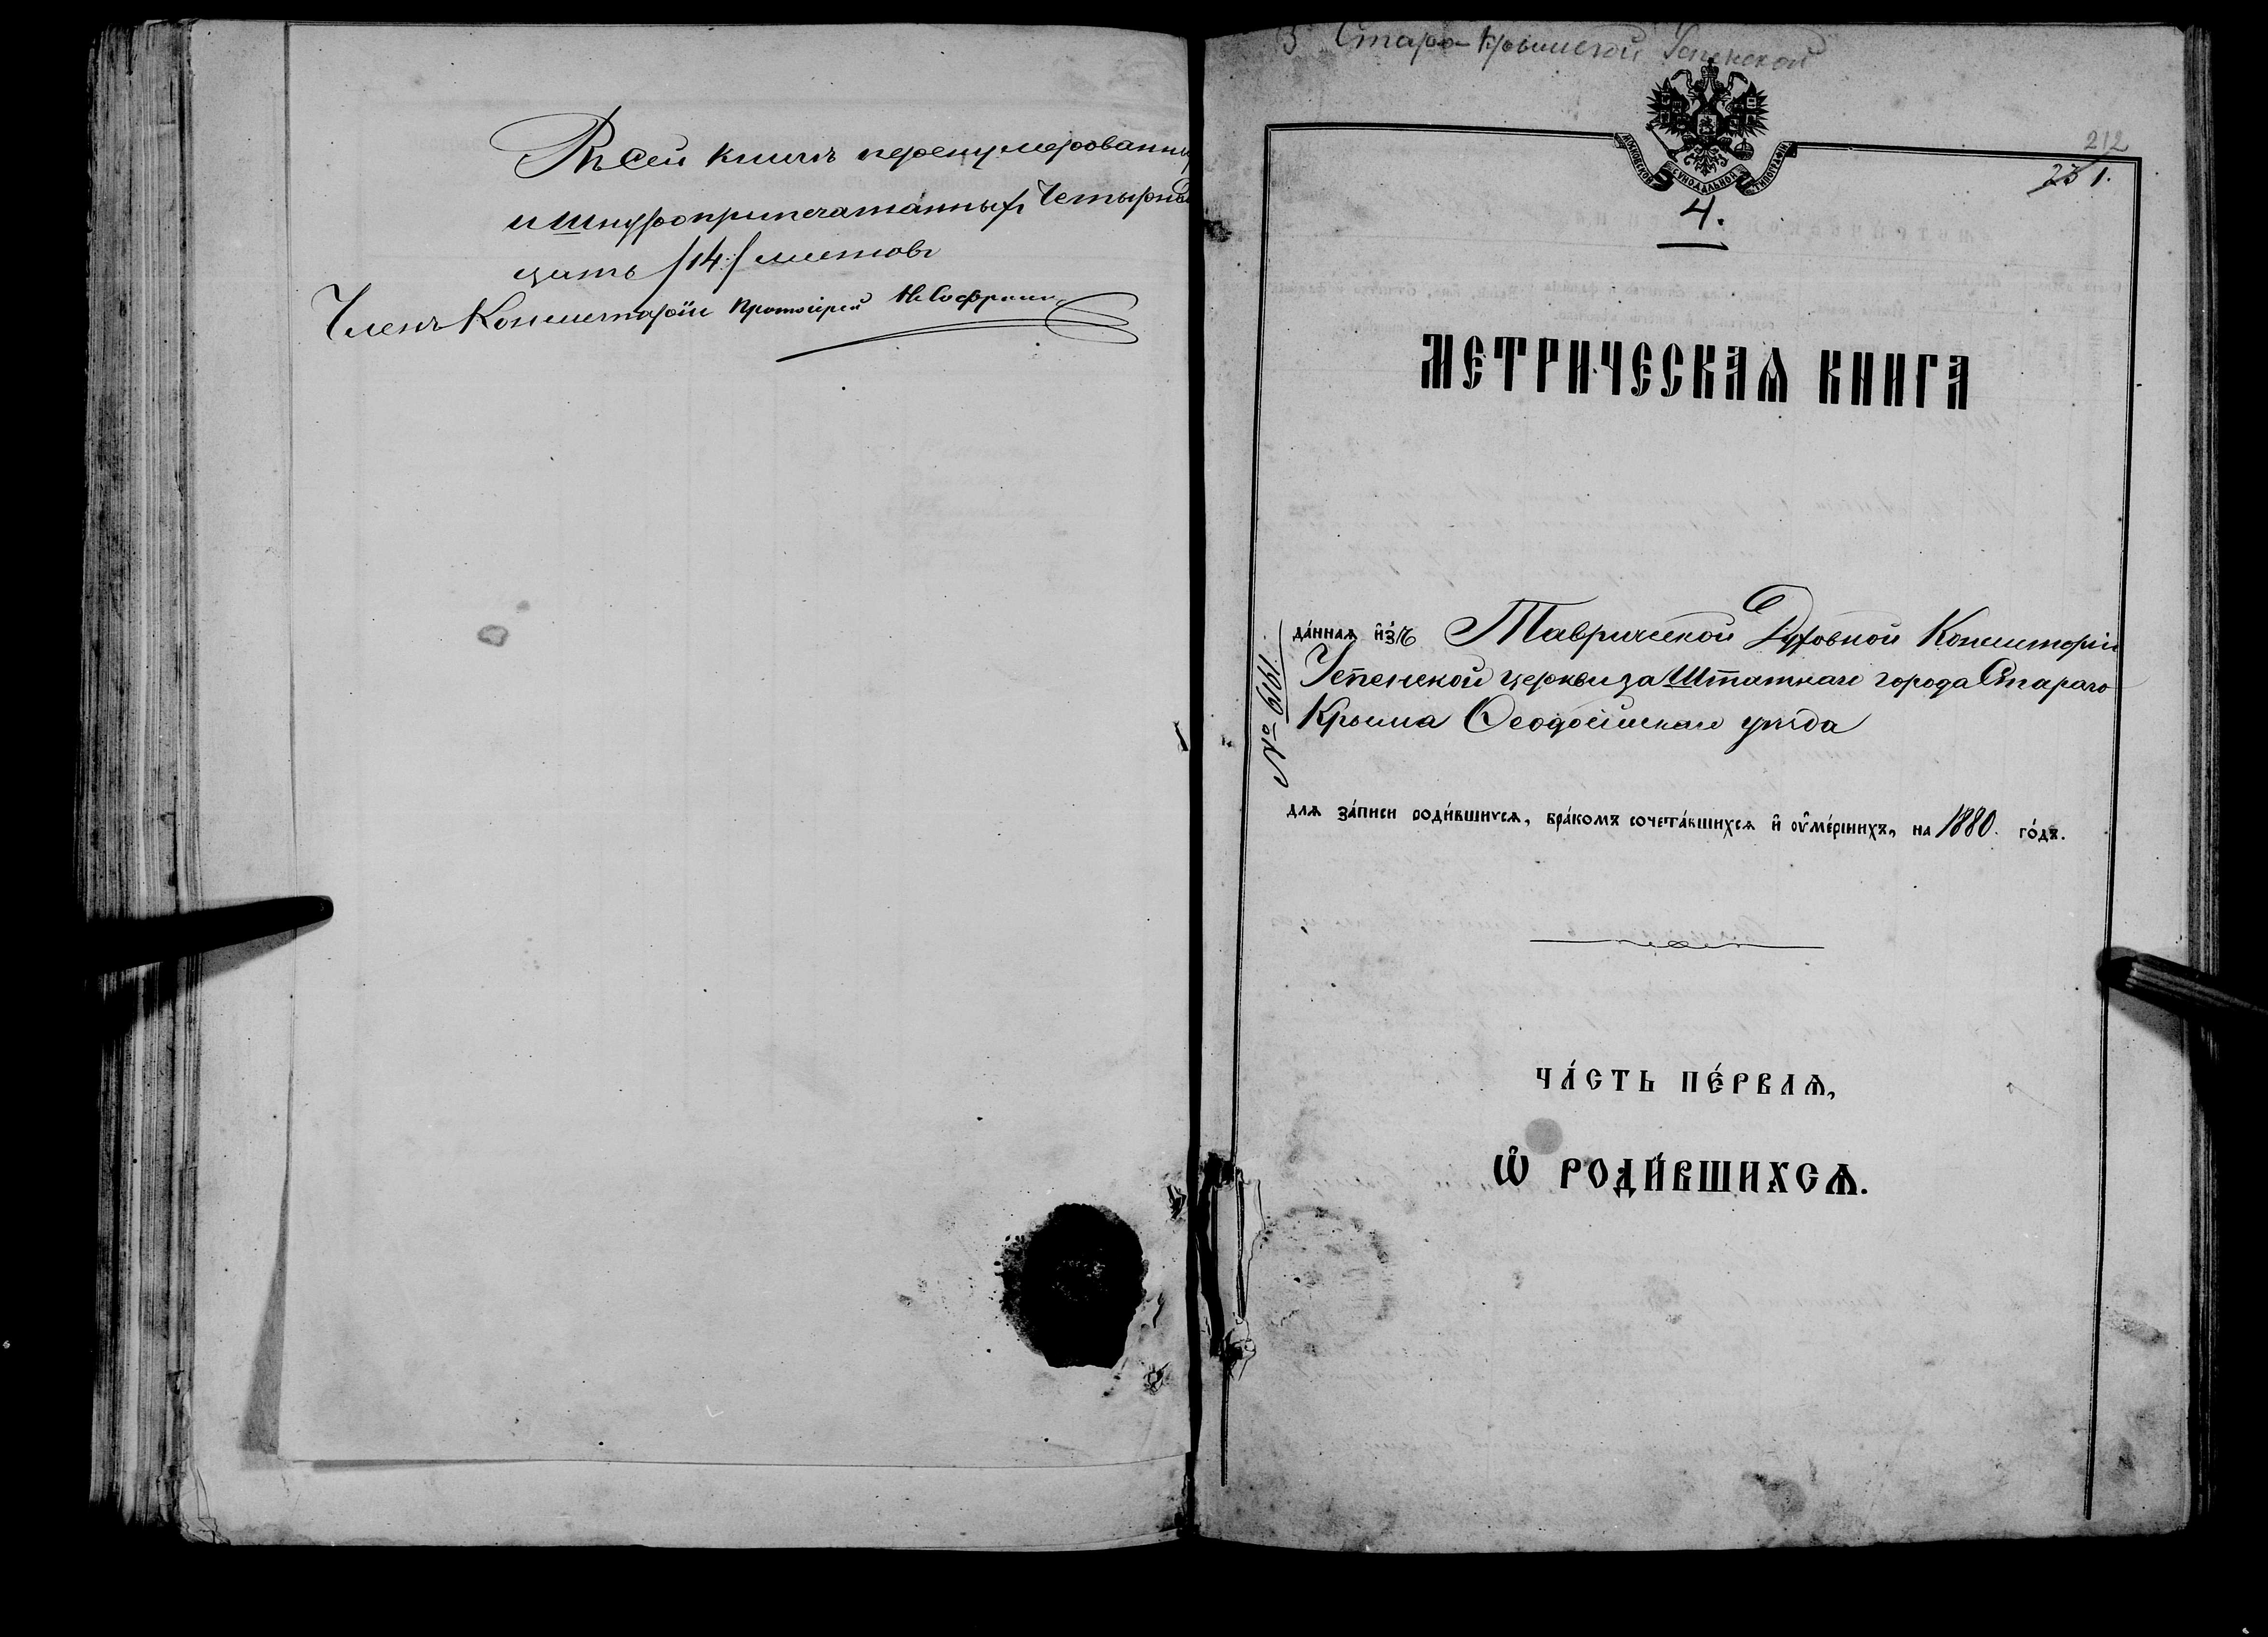 Въ сей книгѣ перенумерованны
и шнуроприпечатанныхъ Четырнад
цать /14/ листовъ
Членъ Консисторіи Протоіерей
3 Старо-Крымской Успенской
212
231.
МОСКОВСКОЙ СѴНОДАЛЬНОЙ ТИПОГРАФІИ
4.
МЕТРИЧЕСКАѦ КНИГА
да́ннаѧ и҆з̾ Таврической Духовной Консисторіи
Успенской церкви заштатнаго города Стараго
Крыма Ѳеодосійскаго уѣзда
№ 6161.
длѧ за́писи роди́вшихсѧ, бра́комъ сочета́вшихсѧ и҆ ᲂу҆ме́ршихъ, на 1880. го́дъ.
ЧА́СТЬ ПЕ́РВАѦ,
Ѽ РОДИ́ВШИХСѦ.